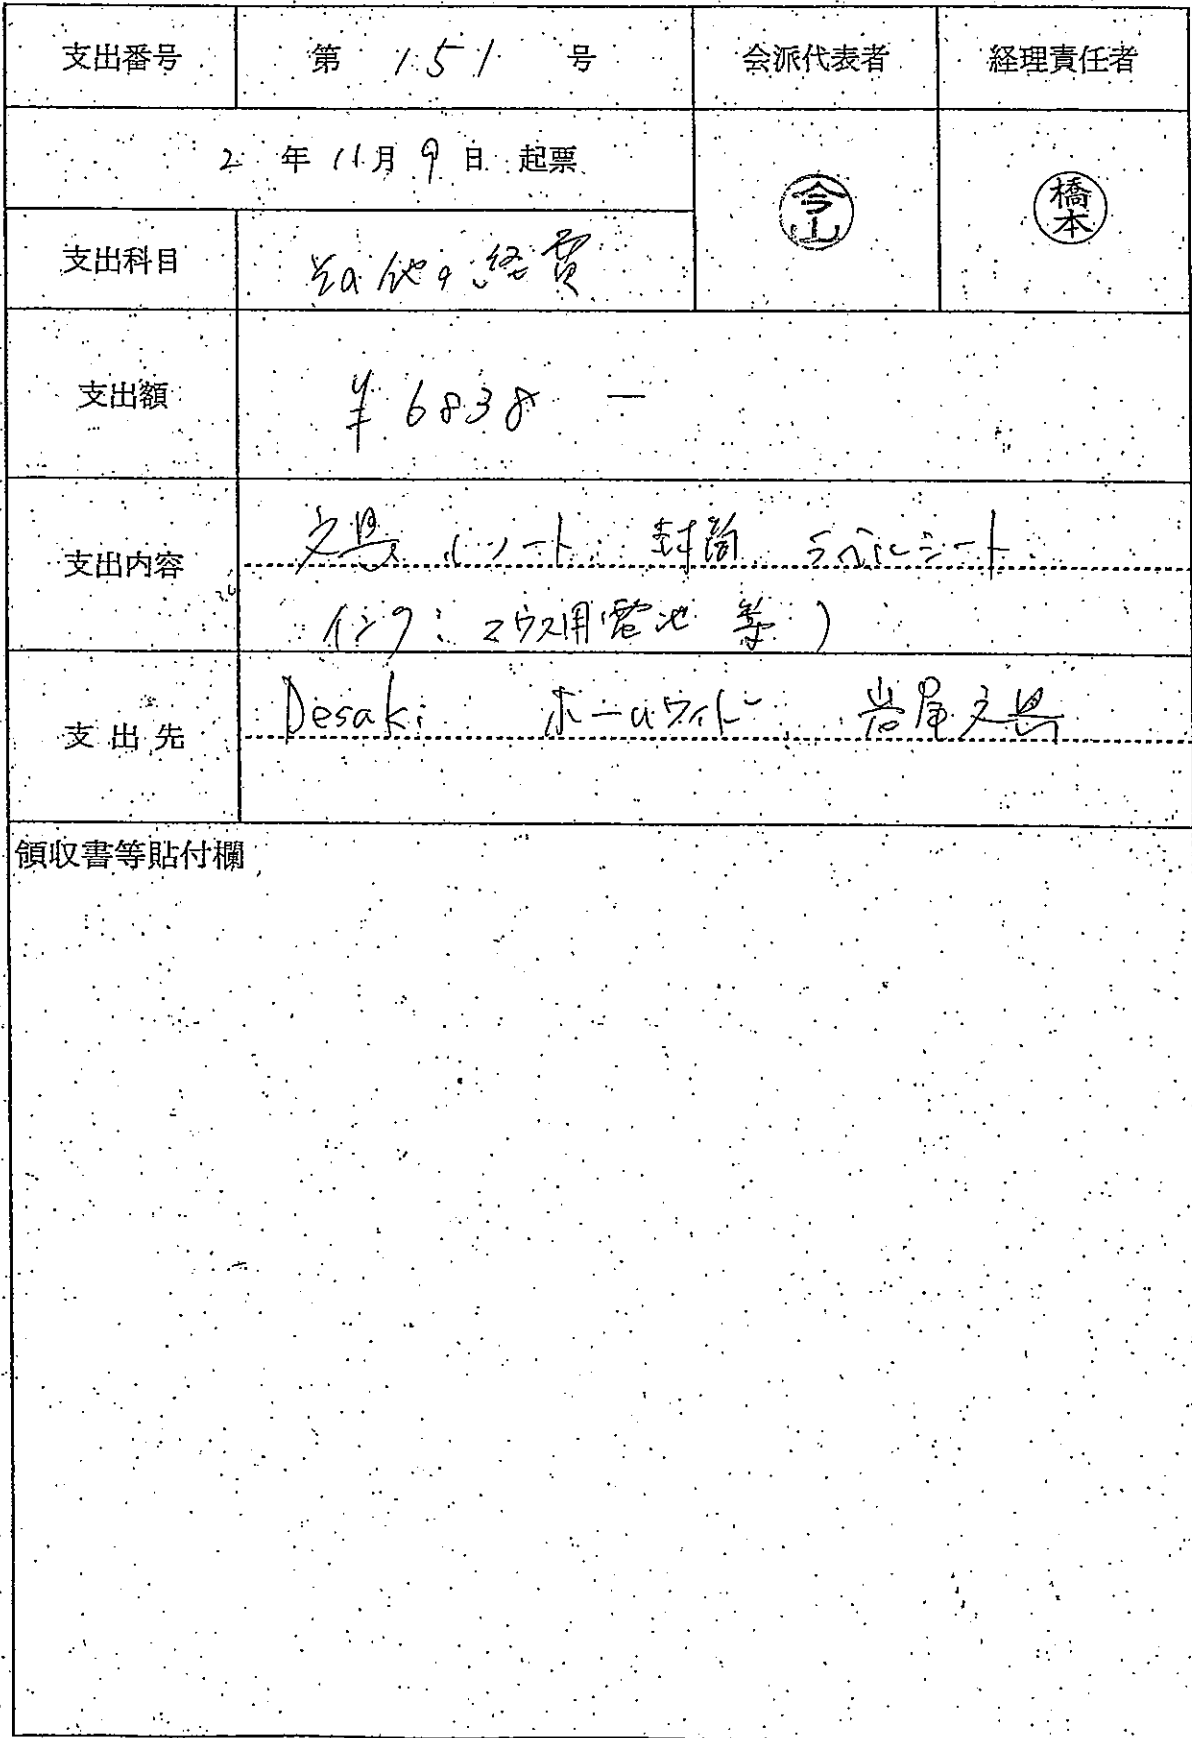 支出番号 第 151 号 会派代表者 経理責任者
2 年 11月 9 日 起票
今山 橋本
支出科目 その他の経費
支出額 ¥6838 ー
支出内容 文具 (ノート 封筒 ラベルシート
インク マウス用電池 等)
支出先 Desaki ホームワイド 岩尾文具
領収書等貼付欄